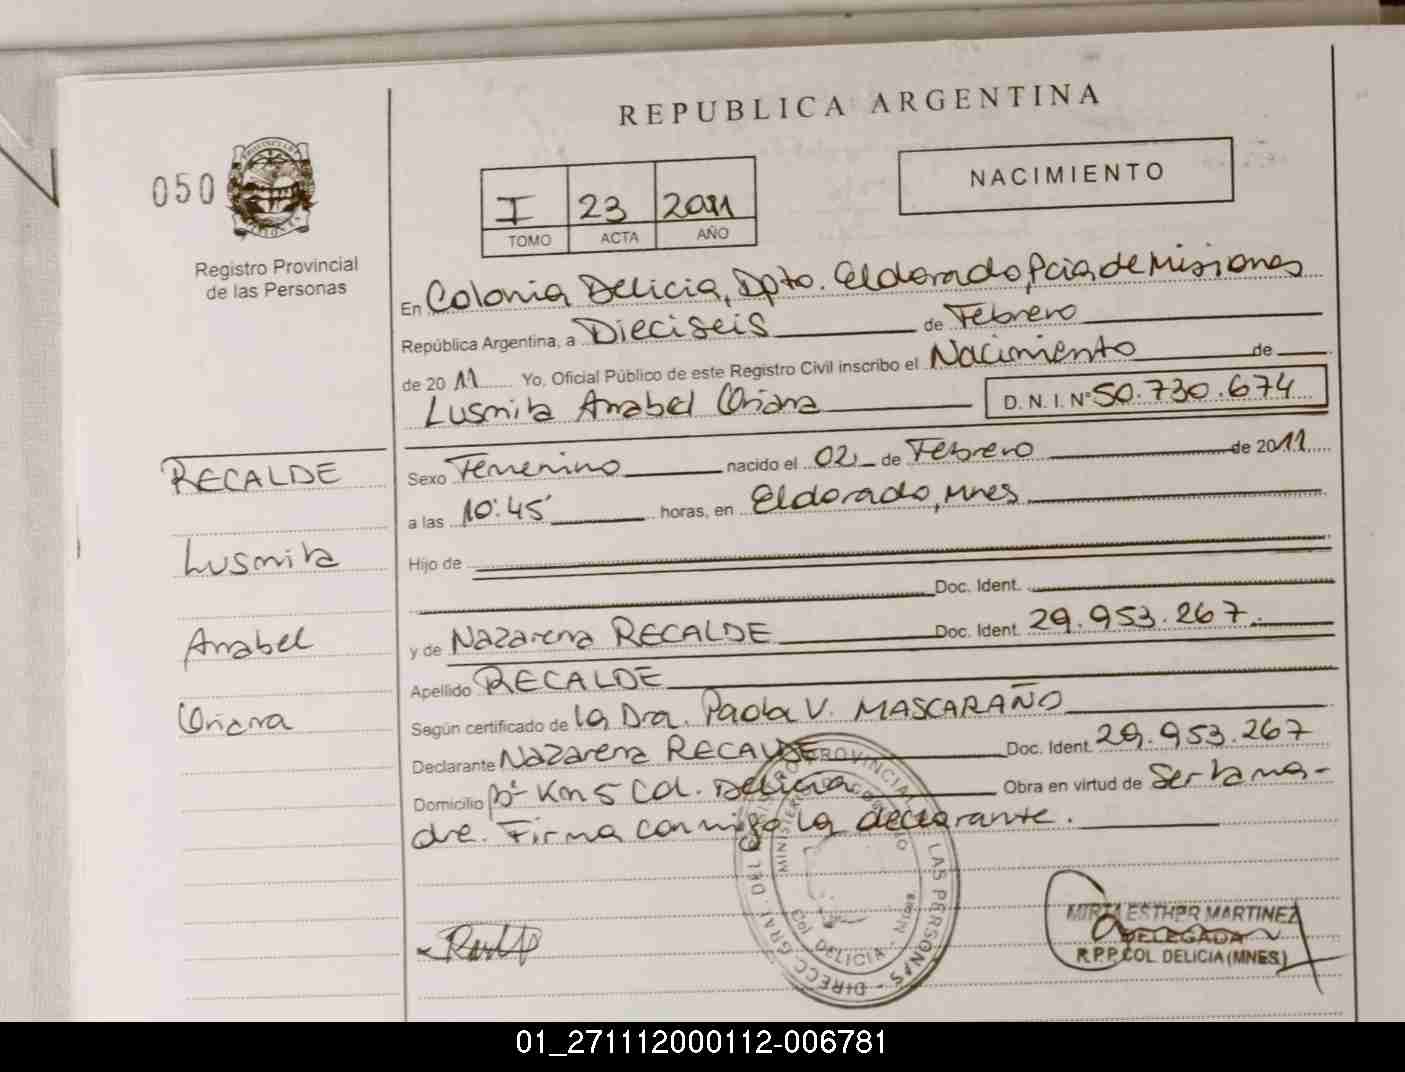 REPUBLICA ARGENTINA
050
Registro Provincial
de las Personas
I 23 2011
TOMO ACTA AÑO
NACIMIENTO
En Colonia Delicia, Dpto. Eldorado, Pcia de Misiones
República Argentina, a Dieciseis de Febrero
de 2011 Yo, Oficial Público de este Registro Civil inscribo el Nacimiento de
Lusmila Anabel Oriana D. N. I. Nº 50.730.674
RECALDE
Lusmila
Anabel
Oriana
Sexo Femenino nacido el 02 de Febrero de 2011
a las 10:45 horas, en Eldorado, Mnes
Hijo de
Doc. Ident.
y de Nazarena RECALDE Doc. Ident. 29.953.267
Apellido RECALDE
Según certificado de la Dra. Paola V. MASCARAÑO
Declarante Nazarena RECALDE Doc. Ident. 29.953.267
Domicilio Km 5 Col. Delicia Obra en virtud de Ser la ma-
dre. Firma conmigo la declarante.
MIRTA ESTHER MARTINEZ
DELEGADA
R.P.P. COL. DELICIA (MNES)
01_271112000112-006781